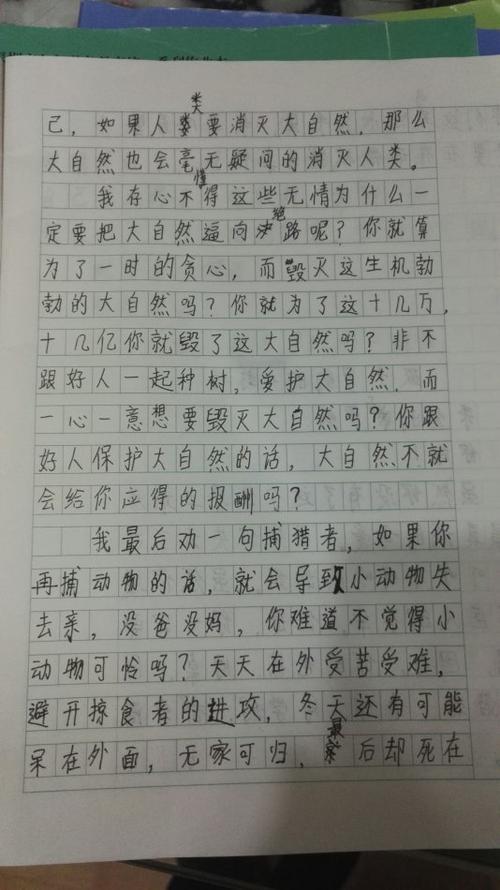 己，如果人类要消灭大自然，那么
大自然也会毫无疑问的消灭人类。
我存心不懂得这些无情为什么一
定要把大自然逼向绝路呢？你就算
为了一时的贪心，而毁灭这生机勃
勃的大自然吗？你就为了这十几万，
十几亿你就毁了这大自然吗？非不
跟好人一起种树，爱护大自然，而
一心一意想要毁灭大自然吗？你跟
好人保护大自然的话，大自然不就
会给你应得的报酬吗？
我最后劝一句捕猎者，如果你
再捕动物的话，就会导致小动物失
去亲，没爸没妈，你难道不觉得小
动物可怜吗？天天在外受苦受难，
避开掠食者的进攻，冬天还有可能
呆在外面，无家可归，最后却死在